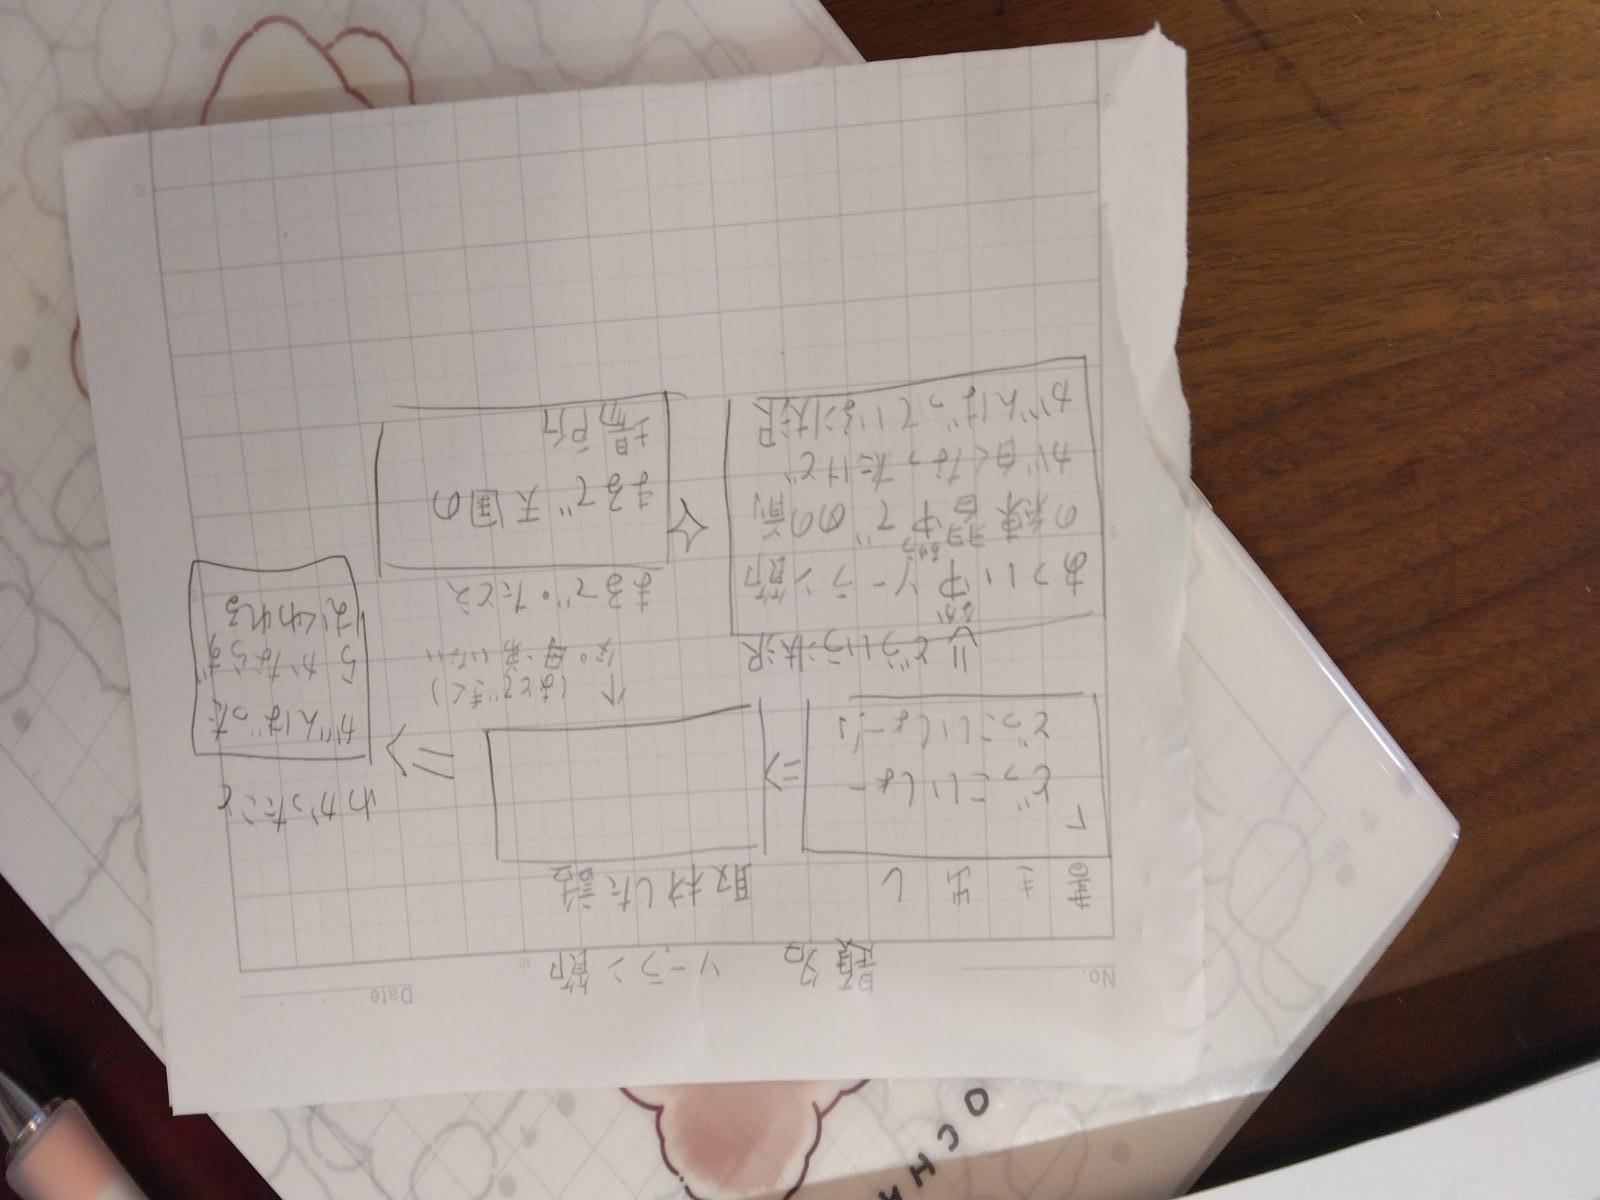 No.
Date
題名 ソーラン節
書き出し
取材した話
わかったこと
「
どっこいしょー
どっこいしょー!」
⇒
⇒
がんばった
らかならず
むくわれる
⇓どういう状況
↑(あとできく)
なか
あつい中ソーラン節
ちゅう
の練習中で目の前
が白くなったけど
がんばっている状況
まるで。たとえ
まるで天国の
場所
OCH